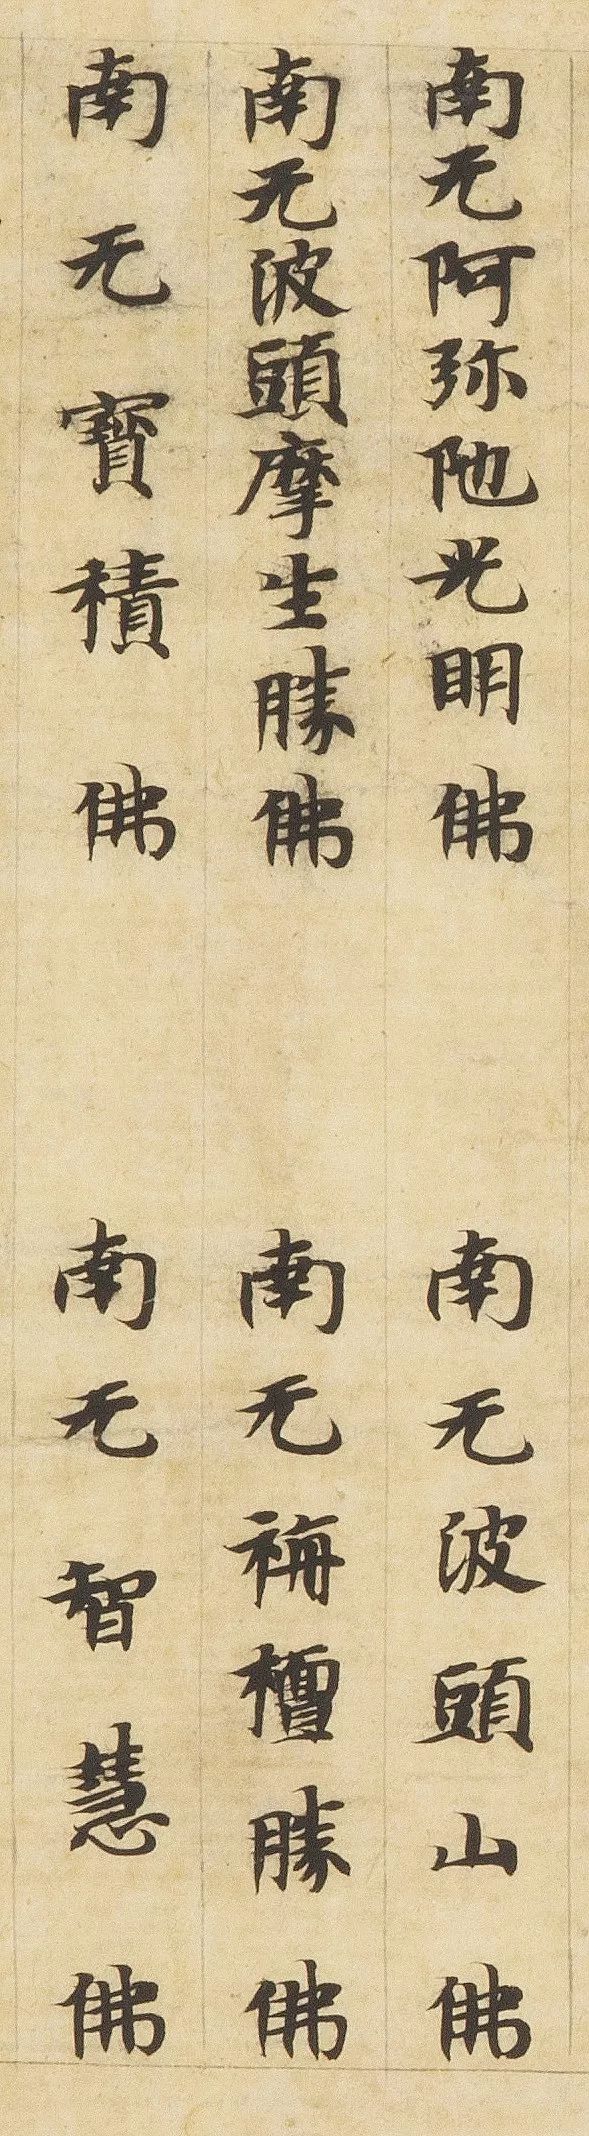 南无阿弥阤光明佛
南无波頭山佛
南无波頭摩生勝佛
南无栴檀勝佛
南无寶積佛
南无智慧佛